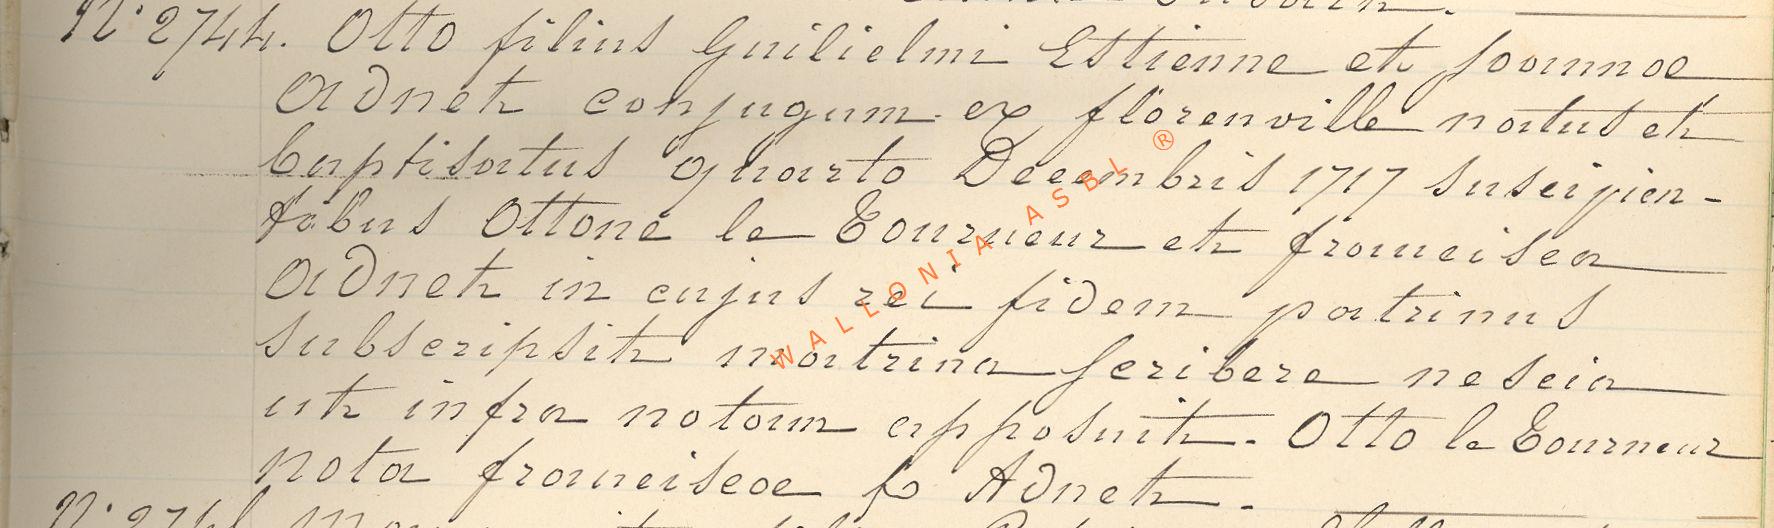 N° 2744. Otto filius Guilielmi Estienne et Joannae
Adnet conjugum ex florenville natus et
baptisatus quarto Decembris 1717 suscipien-
tibus Ottone le Tourneur et francisca
Adnet in cujus rei fidem patrinus
subscripsit matrina scribere nescia
ut infra notam apposuit. Otto le Tourneur
nota franciscae Adnet.
WALLONIA ASBL ®